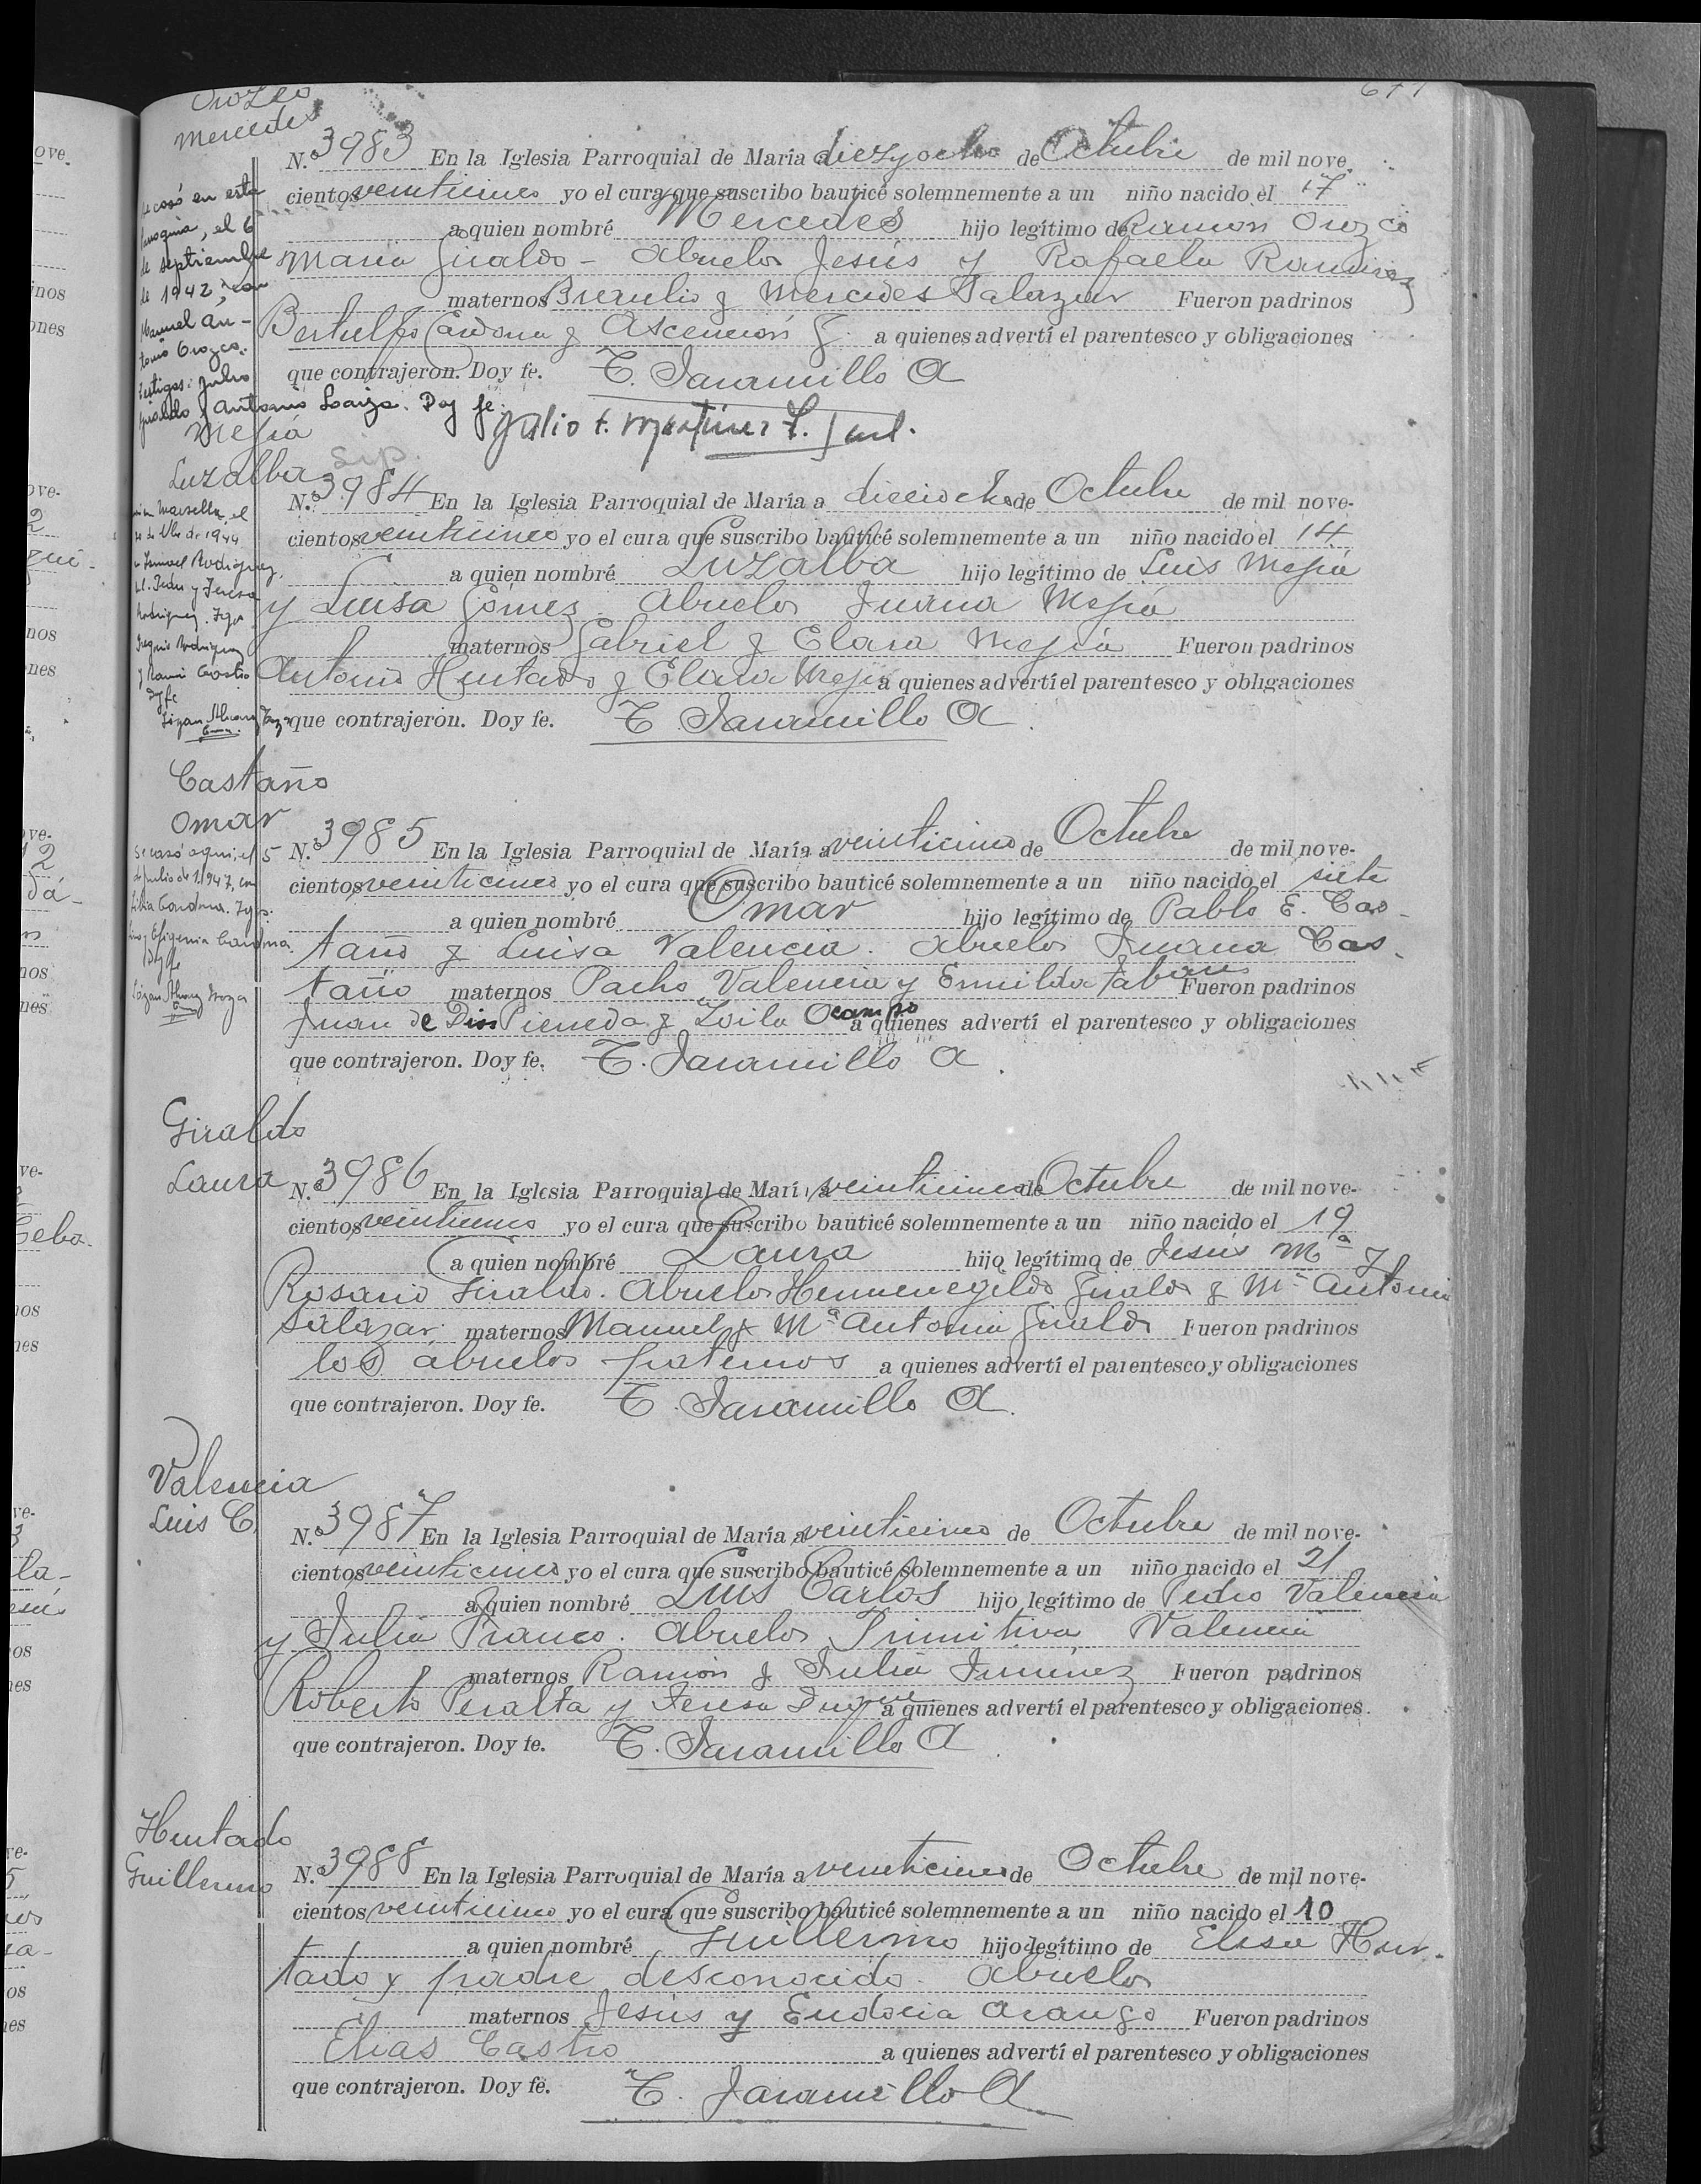 Orozco
Mercedes
N.º 3983 En la Iglesia Parroquial de María a diezyocho de Octubre de mil nove
cientos veinticinco yo el cura que suscribo bauticé solemnemente a un niño nacido el 17
a quien nombré Mercedes hijo legítimo de Ramón Orozco
María Giraldo - Abuelos Jesús y Rafaela Ramírez
maternos Braulio y Mercedes Salazar Fueron padrinos
Bertulfo Cardona y Ascención G a quienes advertí el parentesco y obligaciones
que contrajeron. Doy fe. T. Jaramillo A
Se casó en esta
Parroquia, el 6
de septiembre
de 1942, con
Manuel An-
tonio Orozco.
Testigos: Julio
Giraldo y Antonio Loaiza. Doy fe.
Julio C. Martínez
Mejía
Luzalba
Sip.
N.º 3984 En la Iglesia Parroquial de María a dieciocho de Octubre de mil nove-
cientos veinticinco yo el cura que suscribo bauticé solemnemente a un niño nacido el 14
a quien nombré Luzalba hijo legítimo de Luis Mejía
y Luisa Gómez Abuelos Juana Mejía
maternos Gabriel y Clara Mejía Fueron padrinos
Antonio Hurtado y Clara Mejía a quienes advertí el parentesco y obligaciones
que contrajeron. Doy fe. T Jaramillo A.
Marsella, el
de 1944
Ismael Rodríguez,
Juan y Teresa
Rodríguez. Tgos
Rodríguez
y Ramón Castro
Doy fe
Castaño
Omar
N.º 3985 En la Iglesia Parroquial de María a veinticinco de Octubre de mil nove-
cientos veinticinco yo el cura que suscribo bauticé solemnemente a un niño nacido el siete
a quien nombré Omar hijo legítimo de Pablo E. Cas-
taño y Luisa Valencia. Abuelos Juana Cas
taño maternos Pacho Valencia y Ermilda Tabares Fueron padrinos
Juan de Dios Pineda y Zoila Ocampo a quienes advertí el parentesco y obligaciones
que contrajeron. Doy fe. T. Jaramillo A.
Se casó aquí, el 5
de julio de 1.947, con
Cardona. Tgos.
y Efigenia Cardona.
Doy fe
Giraldo
Laura
N.º 3986 En la Iglesia Parroquial de María a veinticinco de Octubre de mil nove-
cientos veinticinco yo el cura que suscribo bauticé solemnemente a un niño nacido el 19
a quien nombré Laura hijo legítimo de Jesús Mª y
Rosario Giraldo. Abuelos Hermenegildo Giraldo y Mª Antonia
Salazar maternos Manuel y Mª Antonia Giraldo Fueron padrinos
los abuelos paternos a quienes advertí el parentesco y obligaciones
que contrajeron. Doy fe. T. Jaramillo A.
Valencia
Luis C.
N.º 3987 En la Iglesia Parroquial de María a veinticinco de Octubre de mil nove-
cientos veinticinco yo el cura que suscribo bauticé solemnemente a un niño nacido el 21
a quien nombré Luis Carlos hijo legítimo de Pedro Valencia
y Julia Franco. Abuelos Primitiva Valencia
maternos Ramón y Julia Jiménez Fueron padrinos
Roberto Peralta y Teresa Duque a quienes advertí el parentesco y obligaciones.
que contrajeron. Doy fe. T. Jaramillo A.
Hurtado
Guillermo
N.º 3988 En la Iglesia Parroquial de María a veinticinco de Octubre de mil nove-
cientos veinticinco yo el cura que suscribo bauticé solemnemente a un niño nacido el 10
a quien nombré Guillermo hijo legítimo de Elisa Hur-
tado y padre desconocido. Abuelos
maternos Jesús y Eudocia Arango Fueron padrinos
Elías Castro a quienes advertí el parentesco y obligaciones
que contrajeron. Doy fe. T. Jaramillo A